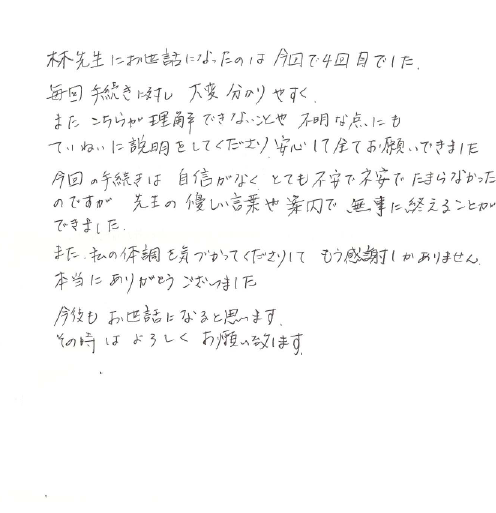 林先生にお世話になったのは 今回で4回目でした.
毎回 手続きに対し 大変 分かりやすく、
また こちらが 理解 できないことや 不明な点にも
ていねいに説明をしてくださり 安心して全てお願いできました
今回の手続きは 自信がなく とても不安で不安でたまらなかった
のですが 先生の 優しい言葉や案内で 無事に終えることが
できました.
また、私の体調を気づかってくださりして もう感謝しかありません.
本当に ありがとう ございました
今後も お世話になると思います.
その時は よろしく お願い致します.